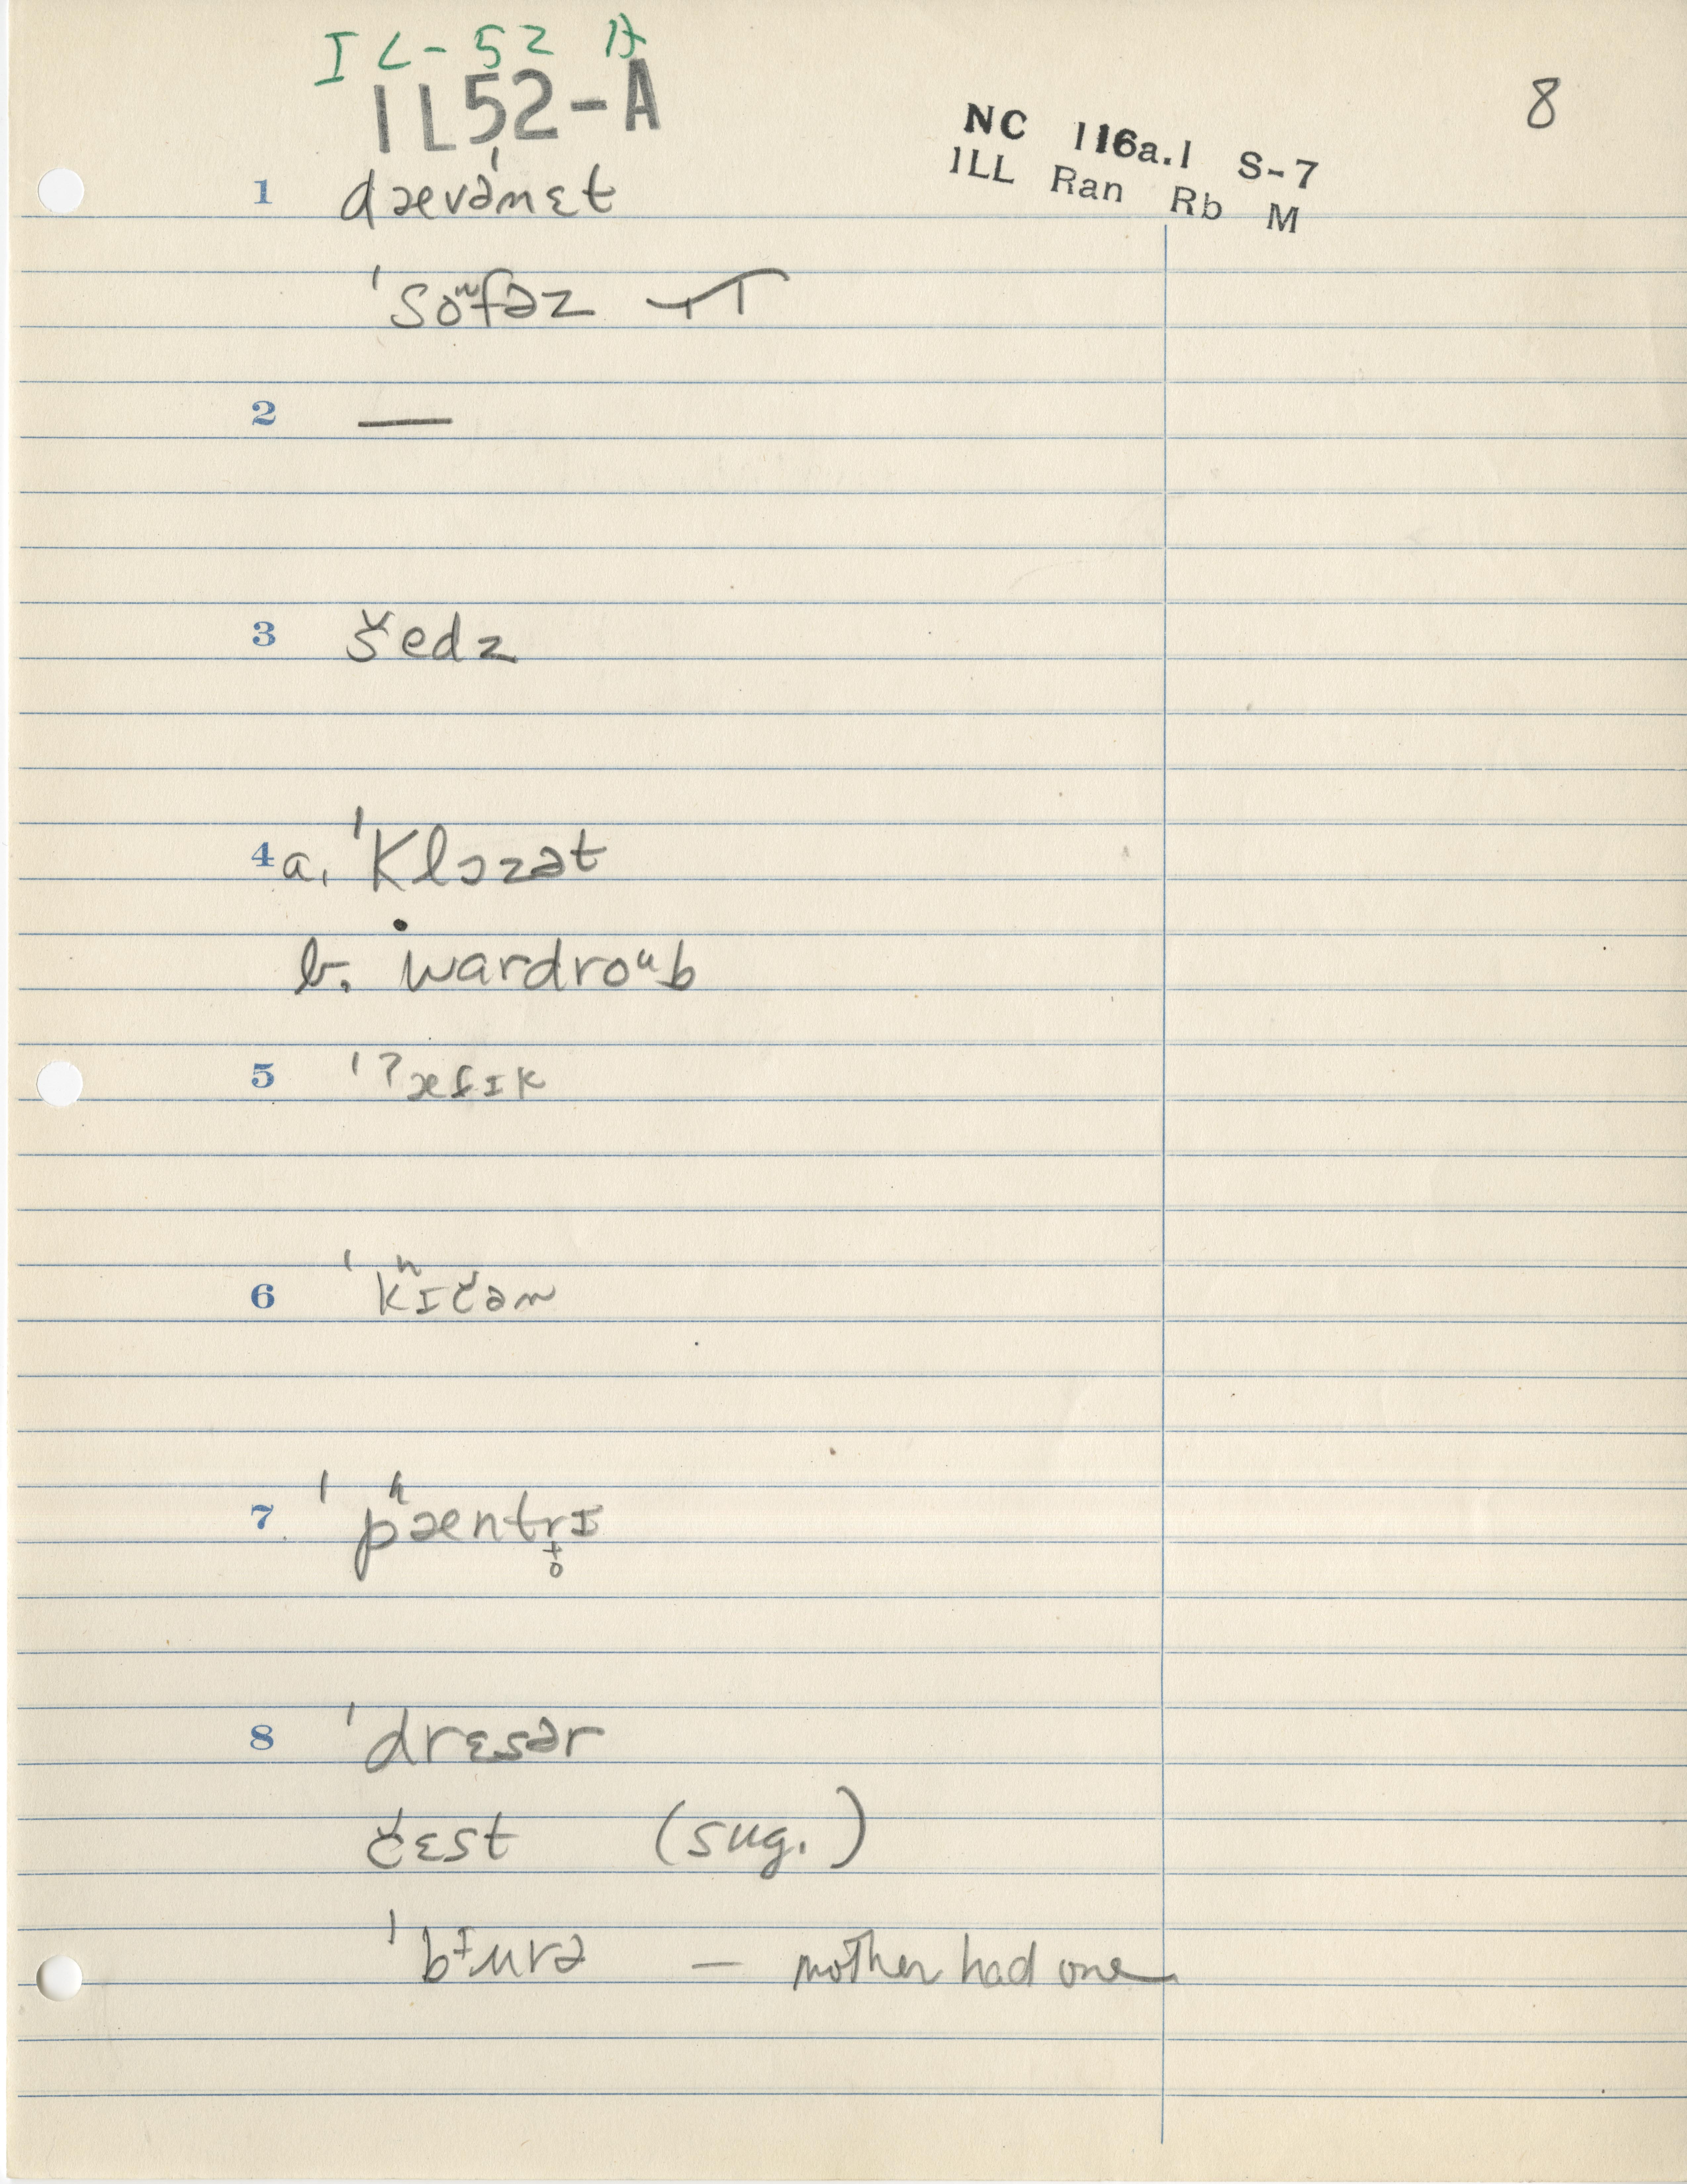 IL-52 A
IL52-A
8
NC 116a.1 S-7
ILL Ran Rb M
1 dævəˈnɛt
ˈsoᵘfəz
2 —
3 šedz
4 a. ˈklɔzət
b. wardroᵘb
5 ˈʔæfɪk
6 ˈkʰɪčən
7 ˈpʰæntr̥ɪ
8 ˈdrɛsər
čɛst (sug.)
ˈbᶤurə — mother had one